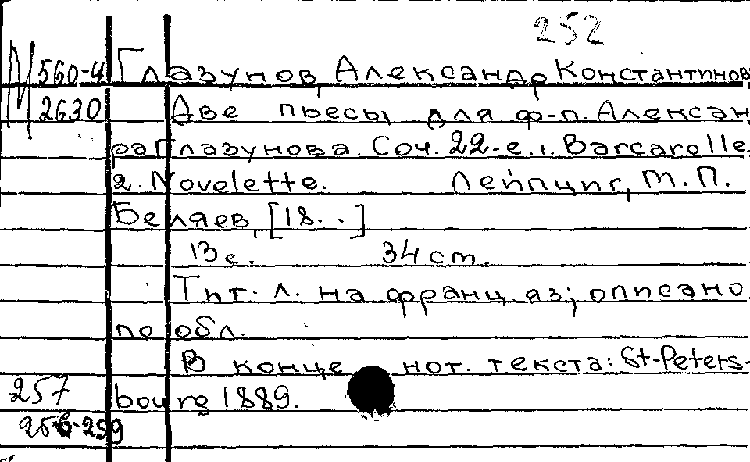 252
М 560-4 Глазунов, Александр Константинов
2630 Две пьесы для ф-п. Алексан
ра Глазунова. Соч. 22-е. 1. Barcarolle.
2. Novelette. Лейпциг, М.П.
Беляев, [18..]
13 с. 34 cm.
Тит. л. на франц. яз; описано
по обл.
В конце нот. текста: St-Peters-
257 bourg 1889.
256-259